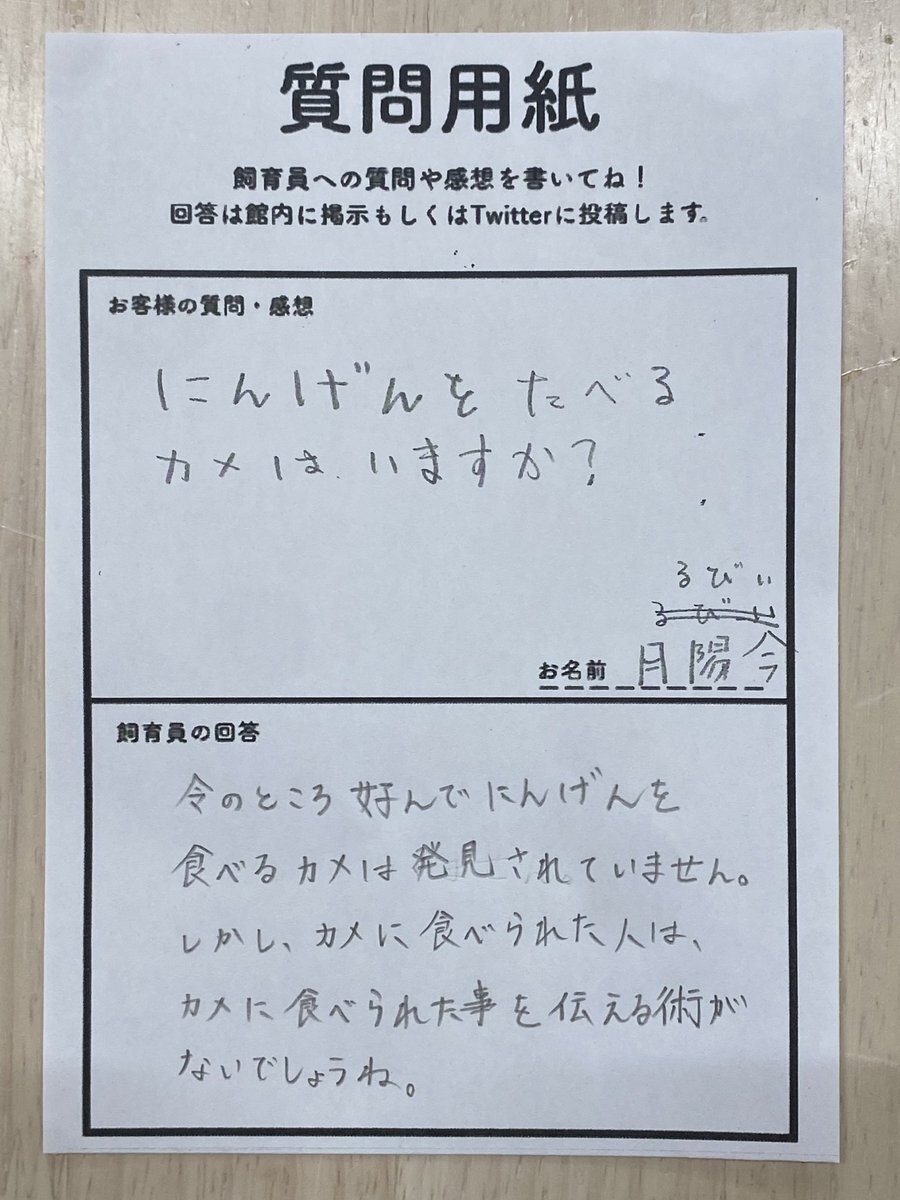 質問用紙
飼育員への質問や感想を書いてね！
回答は館内に掲示もしくはTwitterに投稿します。
お客様の質問・感想
にんげんを たべる
カメは いますか？
るびぃ
るびぃ
お名前 月陽令
飼育員の回答
今のところ 好んで にんげんを
食べる カメは 発見 されていません。
しかし、カメに 食べられた 人は、
カメに 食べられた事 を 伝える術が
ないでしょうね。